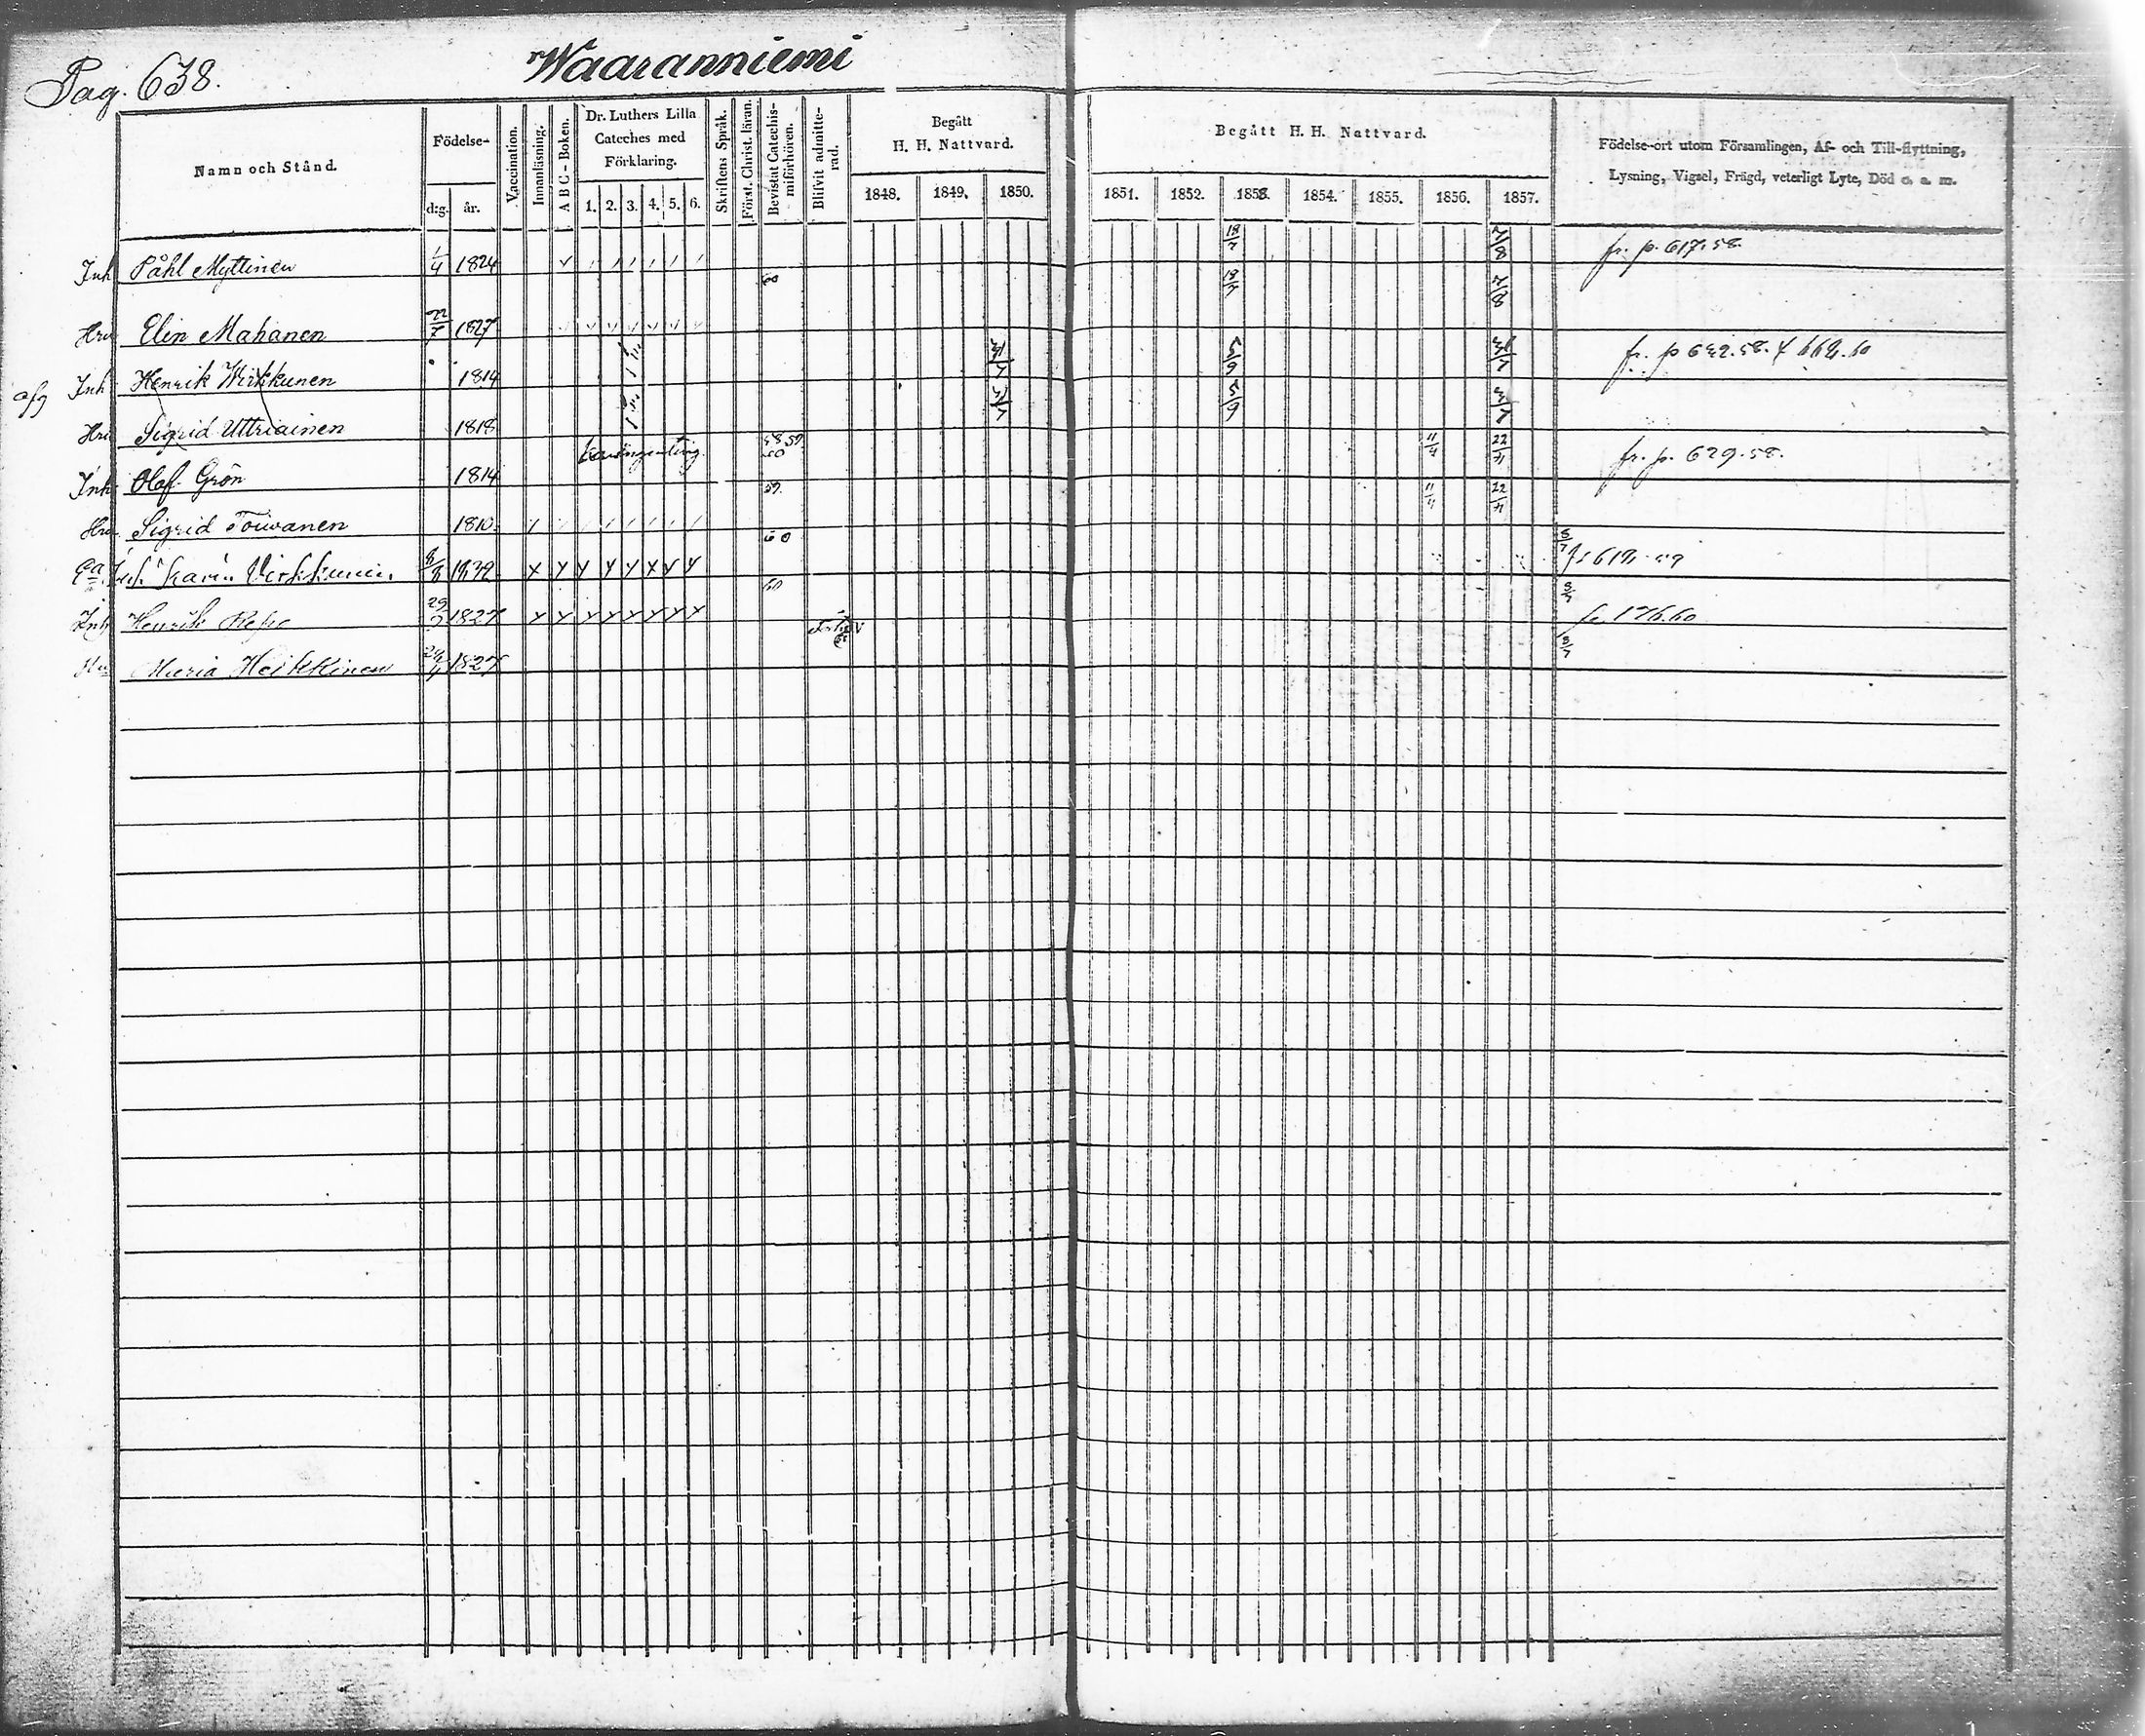 Pag. 638.
Waaranniemi
Namn och Stånd.
Födelse-
d:g. år.
Vaccination.
Innanläsning.
A B C - Boken.
Dr. Luthers Lilla
Cateches med
Förklaring.
1. 2. 3. 4. 5. 6.
Skriftens Språk.
Först. Christ. läran.
Bevistat Catechis-
miförhören.
Blifvit admitte-
rad.
Begått
H. H. Nattvard.
1848. 1849. 1850.
Begått H. H. Nattvard.
1851. 1852. 1853. 1854. 1855. 1856. 1857.
Födelse-ort utom Församlingen, Af- och Till-flyttning,
Lysning, Vigsel, Frägd, veterligt Lyte, Död o. a. m.
Inh Påhl Myttinen 1/4 1824 18/7 7/8 fr. p. 617.58
Hru Elin Mahanen 22/7 1827 60 18/7 7/8
afg Inh Henrik Wirkkunen 1814 5/9 fr. p 642.58. 60
Hru Sigrid Uttriainen 1818 5/9
Inh Olof Grön 1814 58 59 60 11/4 22/11 fr. p. 629.58.
Hru Sigrid Toiwanen 1810 59. 11/4 22/11
Karin Virkkunen 1839 60 8/7
Inh Henrik Repo 29 1827 60 8/7 176.60
Maria Heikkinen 1827 8/7